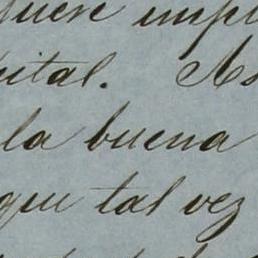 quiere impl
ital. As
la buena
que tal vez